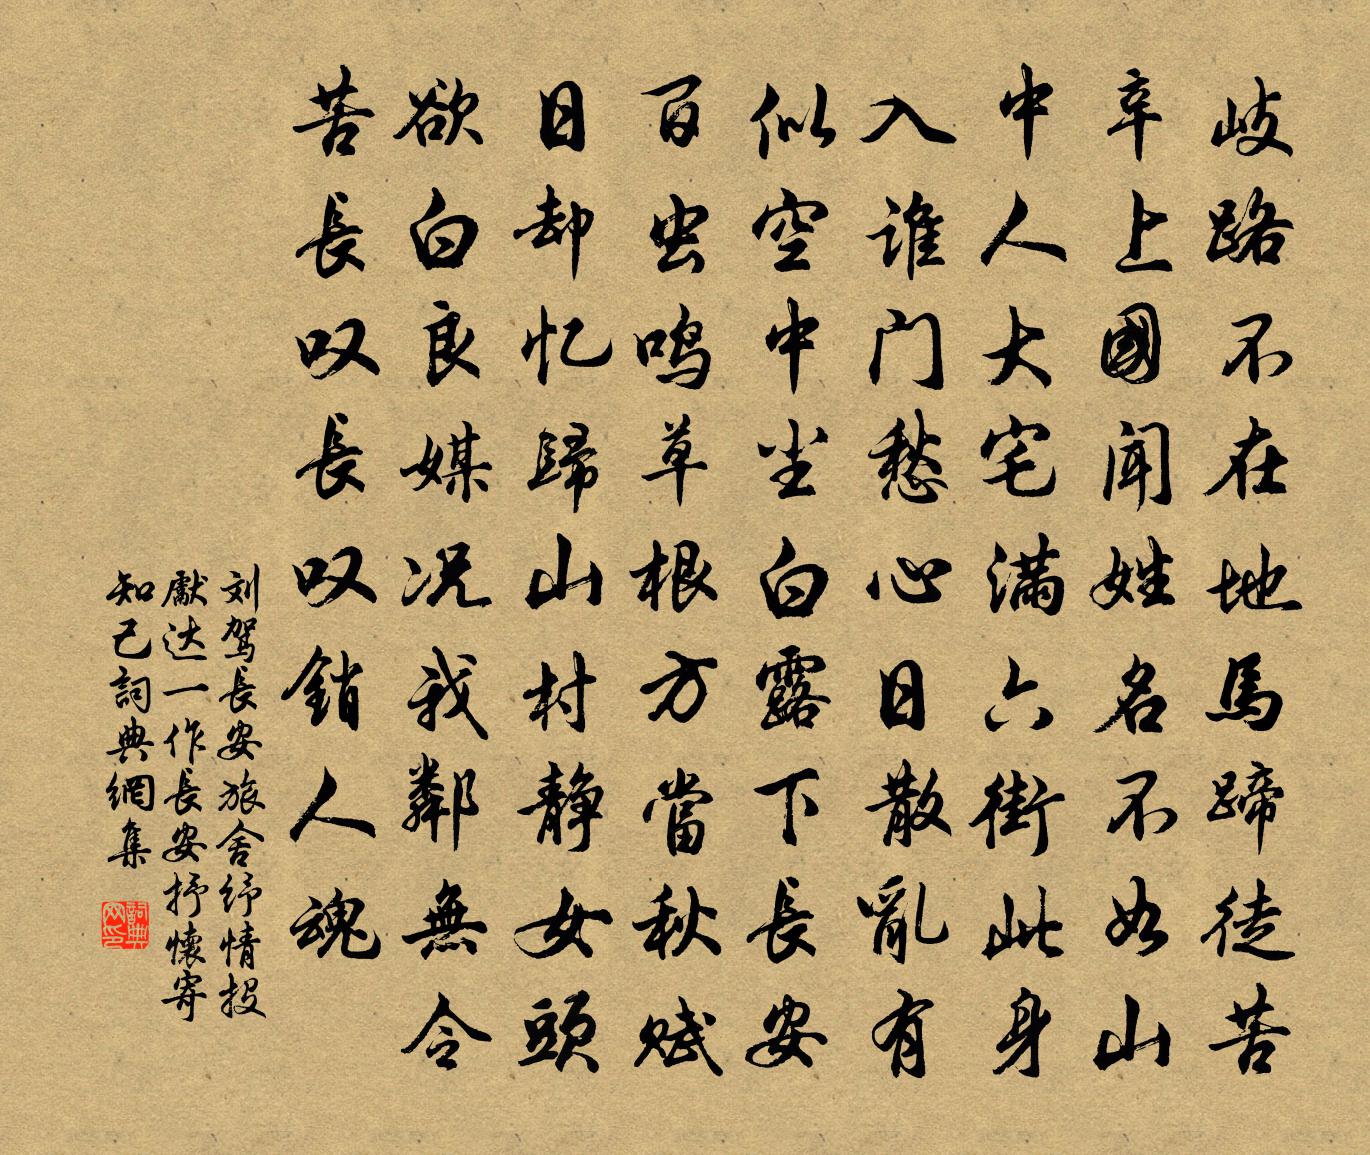 歧路不在地馬蹄徒苦
辛上國聞姓名不如山
中人大宅滿六街此身
入誰门愁心日散亂有
似空中尘白露下長安
百虫鸣草根方當秋赋
日却忆歸山村静女頭
欲白良媒况我鄰無令
苦長叹長叹銷人魂
刘驾長安旅舍纾情投
獻达一作長安抒懷寄
知己詞典網集
詞典网印